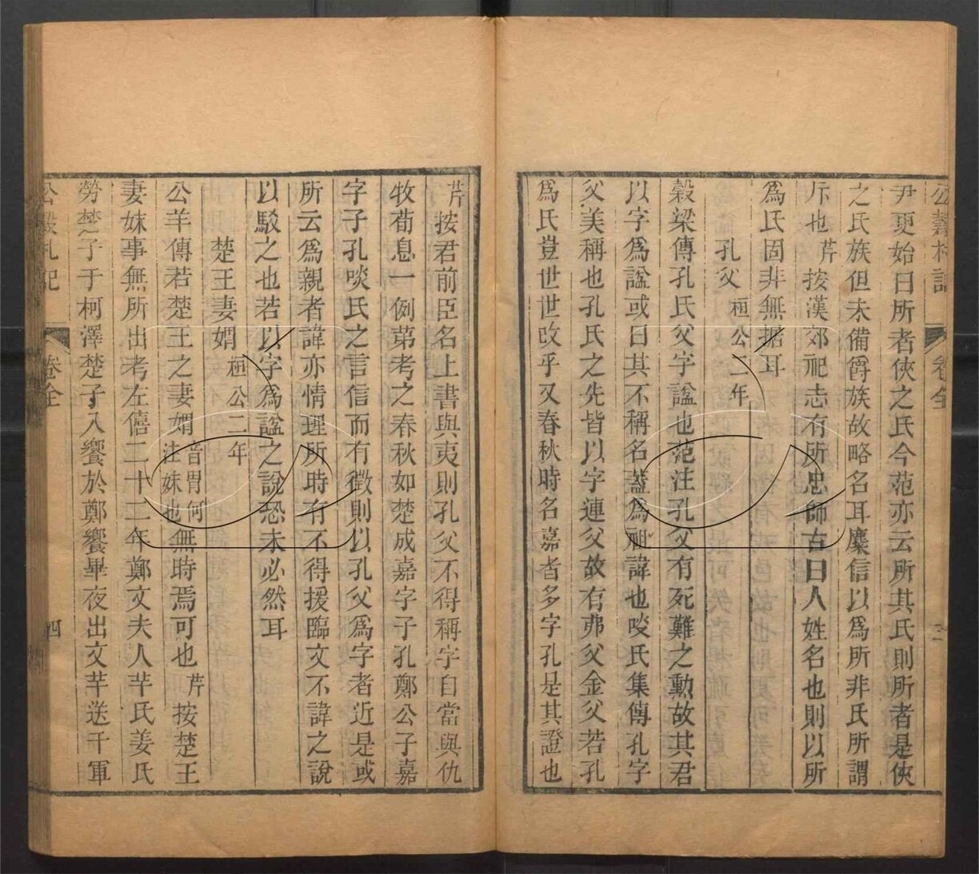 公穀札記 卷全 三
尹更始曰所者俠之氏今范亦云所其氏則所者是俠
之氏族但未備爵族故略名耳麋信以爲所非氏所謂
斥也芹按漢郊祀志有所忠師古曰人姓名也則以所
爲氏固非無据耳
孔父桓公二年
穀梁傳孔氏父字諡也范注孔父有死難之勳故其君
以字爲諡或曰其不稱名蓋爲祖諱也啖氏集傳孔字
父美稱也孔氏之先皆以字連父故有弗父金父若孔
爲氏豈世世改乎又春秋時名嘉者多字孔是其證也
芹按君前臣名上書與夷則孔父不得稱字自當與仇
牧荀息一例第考之春秋如楚成嘉字子孔鄭公子嘉
字子孔啖氏之言信而有徵則以孔父爲字者近是或
所云爲親者諱亦情理所時有不得援臨文不諱之說
以駁之也若以字爲諡之說恐未必然耳
楚王妻媦桓公二年
公羊傳若楚王之妻媦音胃何注妹也無時焉可也芹按楚王
妻妹事無所出考左僖二十二年鄭文夫人芉氏姜氏
勞楚子于柯澤楚子入饗於鄭饗畢夜出文芉送于軍
公穀札記 卷全 四